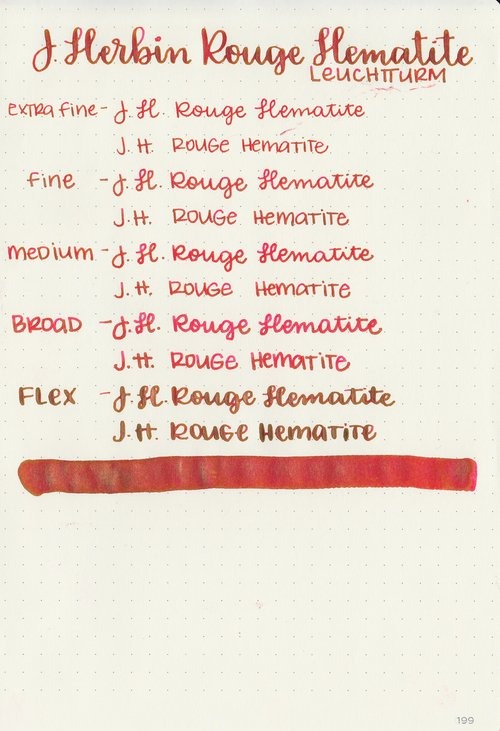 J. Herbin Rouge Hematite
LEUCHTTURM
extra fine - J. H. Rouge Hematite
J. H. ROUGE HEMATITE
Fine - J. H. Rouge Hematite
J. H. ROUGE HEMATITE
medium - J. H. Rouge Hematite
J. H. ROUGE HEMATITE
BROAD - J. H. Rouge Hematite
J. H. ROUGE HEMATITE
FLEX - J. H. Rouge Hematite
J. H. ROUGE HEMATITE
199